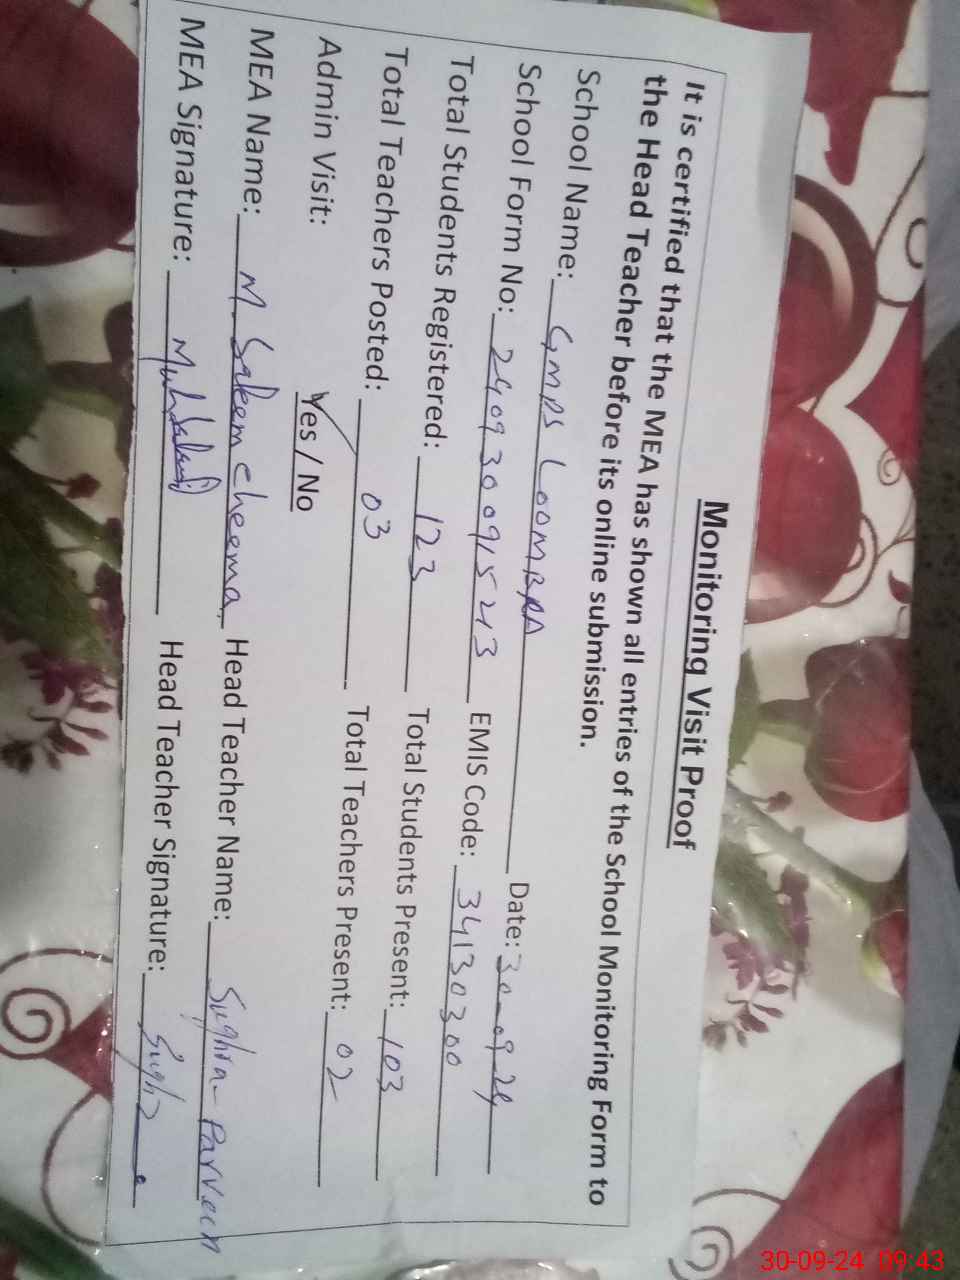 Monitoring Visit Proof
It is certified that the MEA has shown all entries of the School Monitoring Form to
the Head Teacher before its online submission.
School Name: GMPS LOOMBRA Date: 30-09-24
School Form No: 2409300915243 EMIS Code: 34130300
Total Students Registered: 123 Total Students Present: 103
Total Teachers Posted: 03 Total Teachers Present: 02
Admin Visit: Yes / No
MEA Name: M. Saleem cheema Head Teacher Name: Sughra Parveen
MEA Signature: Head Teacher Signature:
30-09-24 09:43